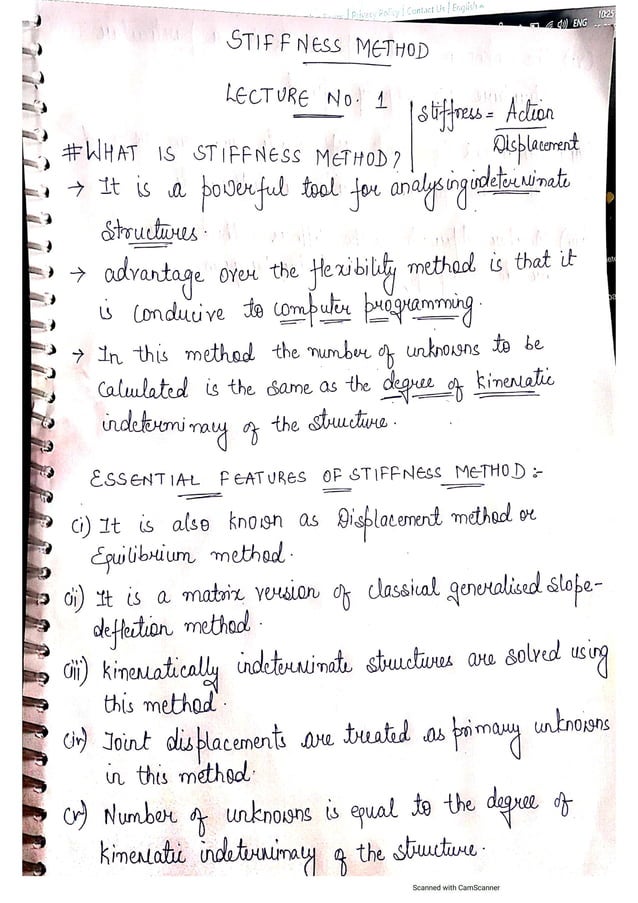 Privacy Policy | Contact Us | English
10:25
ENG
STIFFNESS METHOD
LECTURE NO. 1
Stiffness = Action
Displacement
#WHAT IS STIFFNESS METHOD?
→ It is a powerful tool for analysing indeterminate
structures.
→ advantage over the flexibility method is that it
is conducive to computer programming.
→ In this method the number of unknowns to be
calculated is the same as the degree of kinematic
indeterminacy of the structure.
ESSENTIAL FEATURES OF STIFFNESS METHOD :-
(i) It is also known as Displacement method or
Equilibrium method.
(ii) It is a matrix version of classical generalised slope-
deflection method.
(iii) kinematically indeterminate structures are solved using
this method.
(iv) Joint displacements are treated as primary unknowns
in this method.
(v) Number of unknowns is equal to the degree of
kinematic indeterminacy of the structure.
Scanned with CamScanner